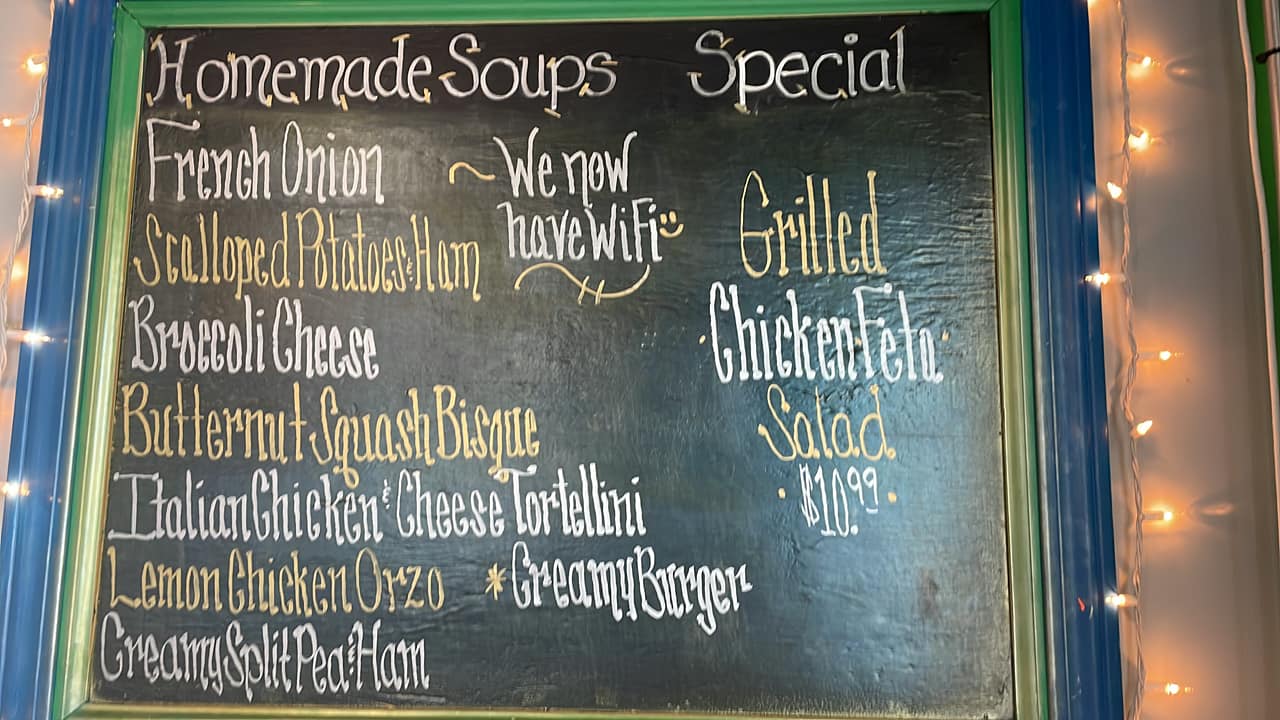 Homemade Soups
French Onion
Scalloped Potatoes & Ham
Broccoli Cheese
Butternut Squash Bisque
Italian Chicken & Cheese Tortellini
Lemon Chicken Orzo
*Creamy Burger
Creamy Split Pea & Ham
~We now
have WiFi
Special
Grilled
Chicken Feta
Salad
$10.99